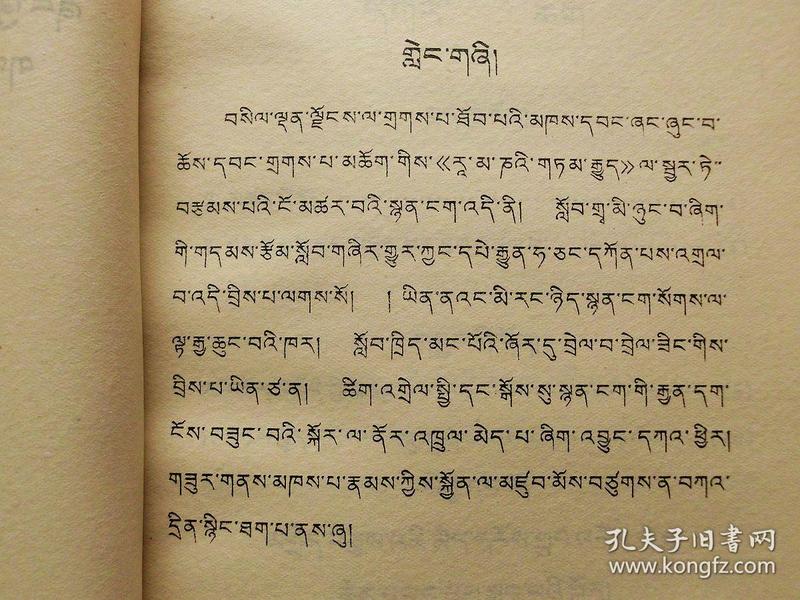 གླེང་གཞི།
བསིལ་ལྡན་ལྗོངས་ལ་གྲགས་པ་ཐོབ་པའི་མཁས་དབང་ཞང་ཞུང་བ་
ཆོས་དབང་གྲགས་པ་མཆོག་གིས་《རཱ་མ་ཎའི་གཏམ་རྒྱུད》ལ་སྦྱར་ཏེ་
བརྩམས་པའི་ངོ་མཚར་བའི་སྙན་ངག་འདི་ནི། སློབ་གྲྭ་མི་ཉུང་བ་ཞིག་
གི་གདམས་རྩོམ་སློབ་གཞིར་གྱུར་ཀྱང་དཔེ་རྒྱུན་ཧ་ཅང་དཀོན་པས་འགྲེལ་
བ་འདི་བྲིས་པ་ལགས་སོ། ། ཡིན་ནའང་མི་རང་ཉིད་སྙན་ངག་སོགས་ལ་
ལྟ་རྒྱ་ཆུང་བའི་ཁར། སློབ་ཁྲིད་མང་པོའི་ཞོར་དུ་བྲེལ་བ་བྲེལ་ཟིང་གིས་
བྲིས་པ་ཡིན་ཙ་ན། ཚིག་འགྲེལ་སྤྱི་དང་སྒོས་སུ་སྙན་ངག་གི་རྒྱན་དག་
ངོས་བཟུང་བའི་སྐོར་ལ་ནོར་འཁྲུལ་མེད་པ་ཞིག་འབྱུང་དཀའ་ཕྱིར།
གཟུར་གནས་མཁས་པ་རྣམས་ཀྱིས་སྐྱོན་ལ་མཛུབ་མོས་བཙུགས་ན་བཀའ་
དྲིན་སྙིང་ཐག་པ་ནས་ཞུ།
孔夫子旧书网
www.kongfz.com